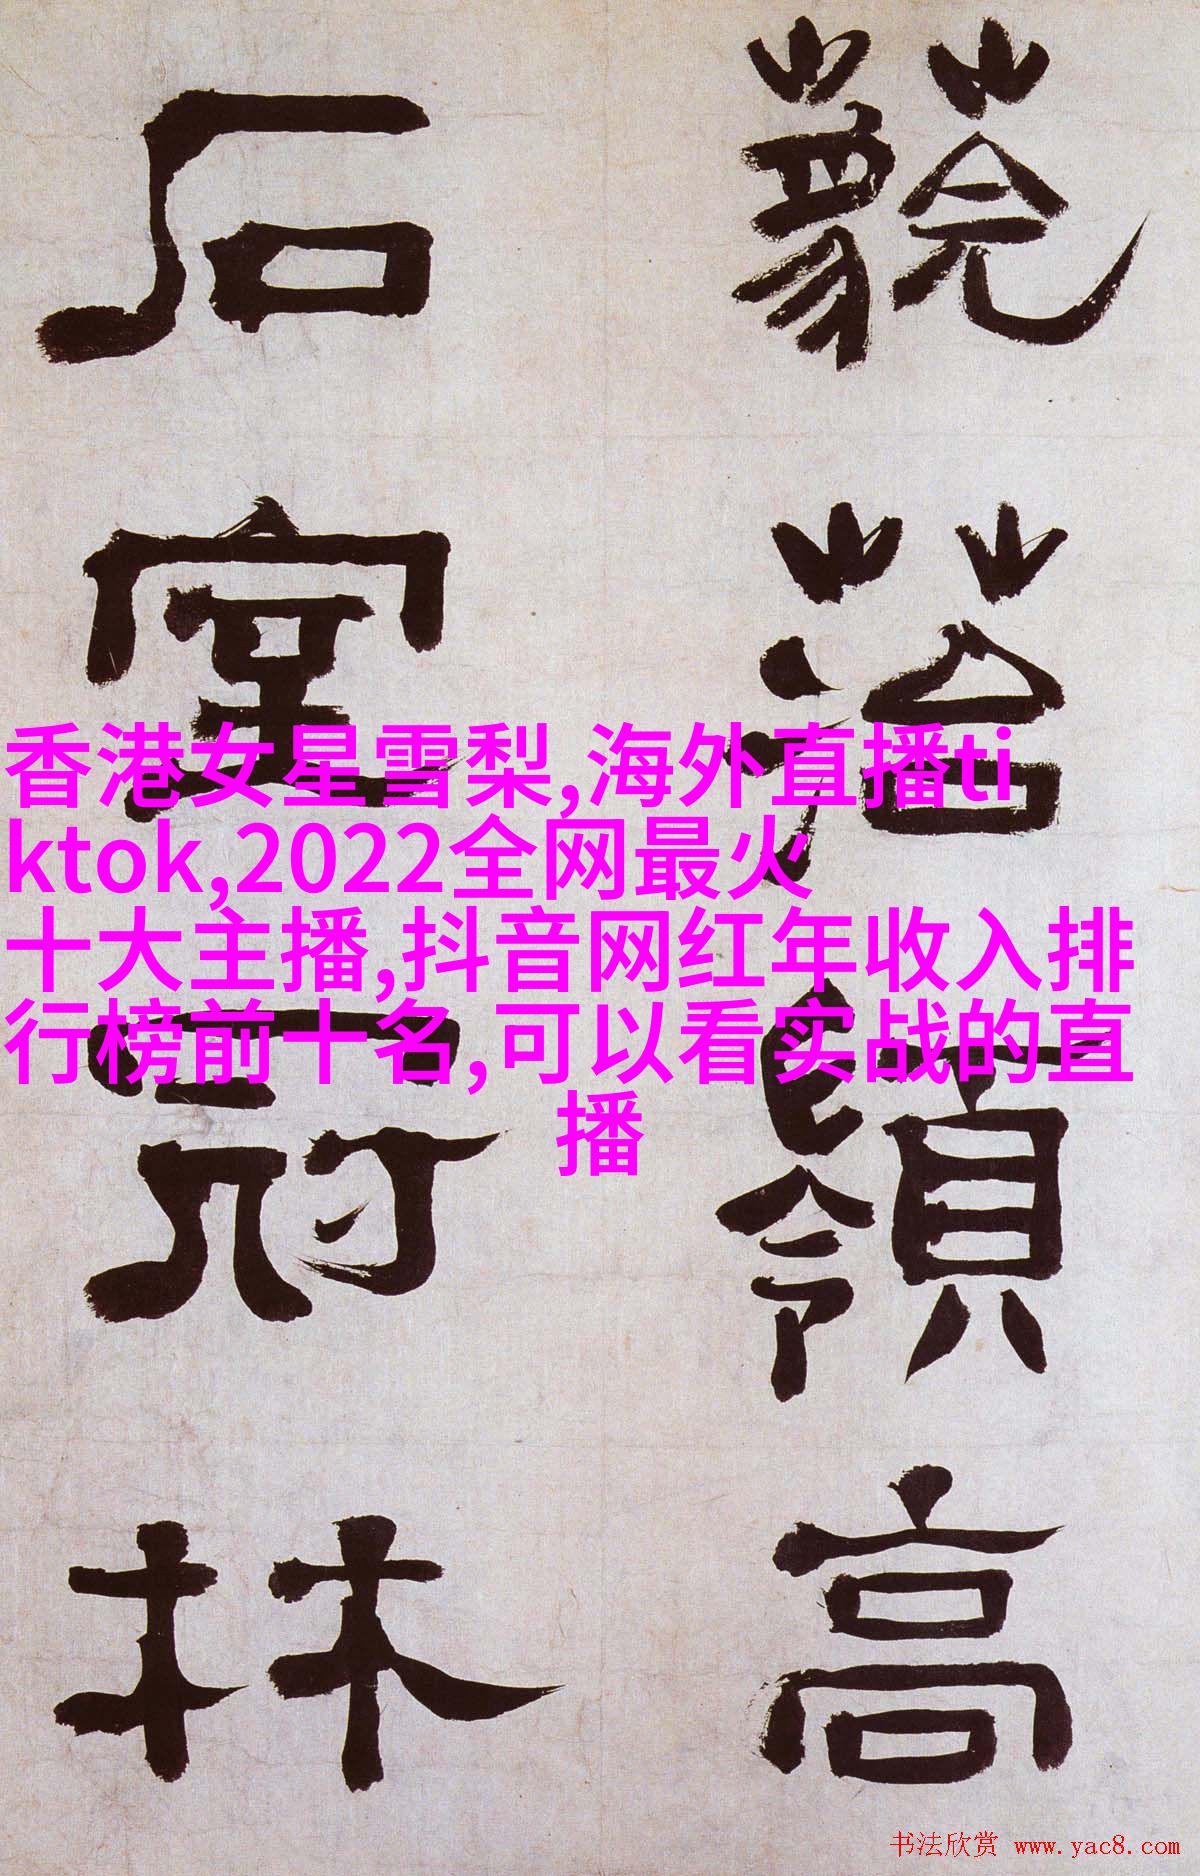 藐菭嶺高
石室冠林
香港女星雪梨,海外直播ti
ktok,2022全网最火
十大主播,抖音网红年收入排
行榜前十名,可以看实战的直
播
书法欣赏 www.yac8.com